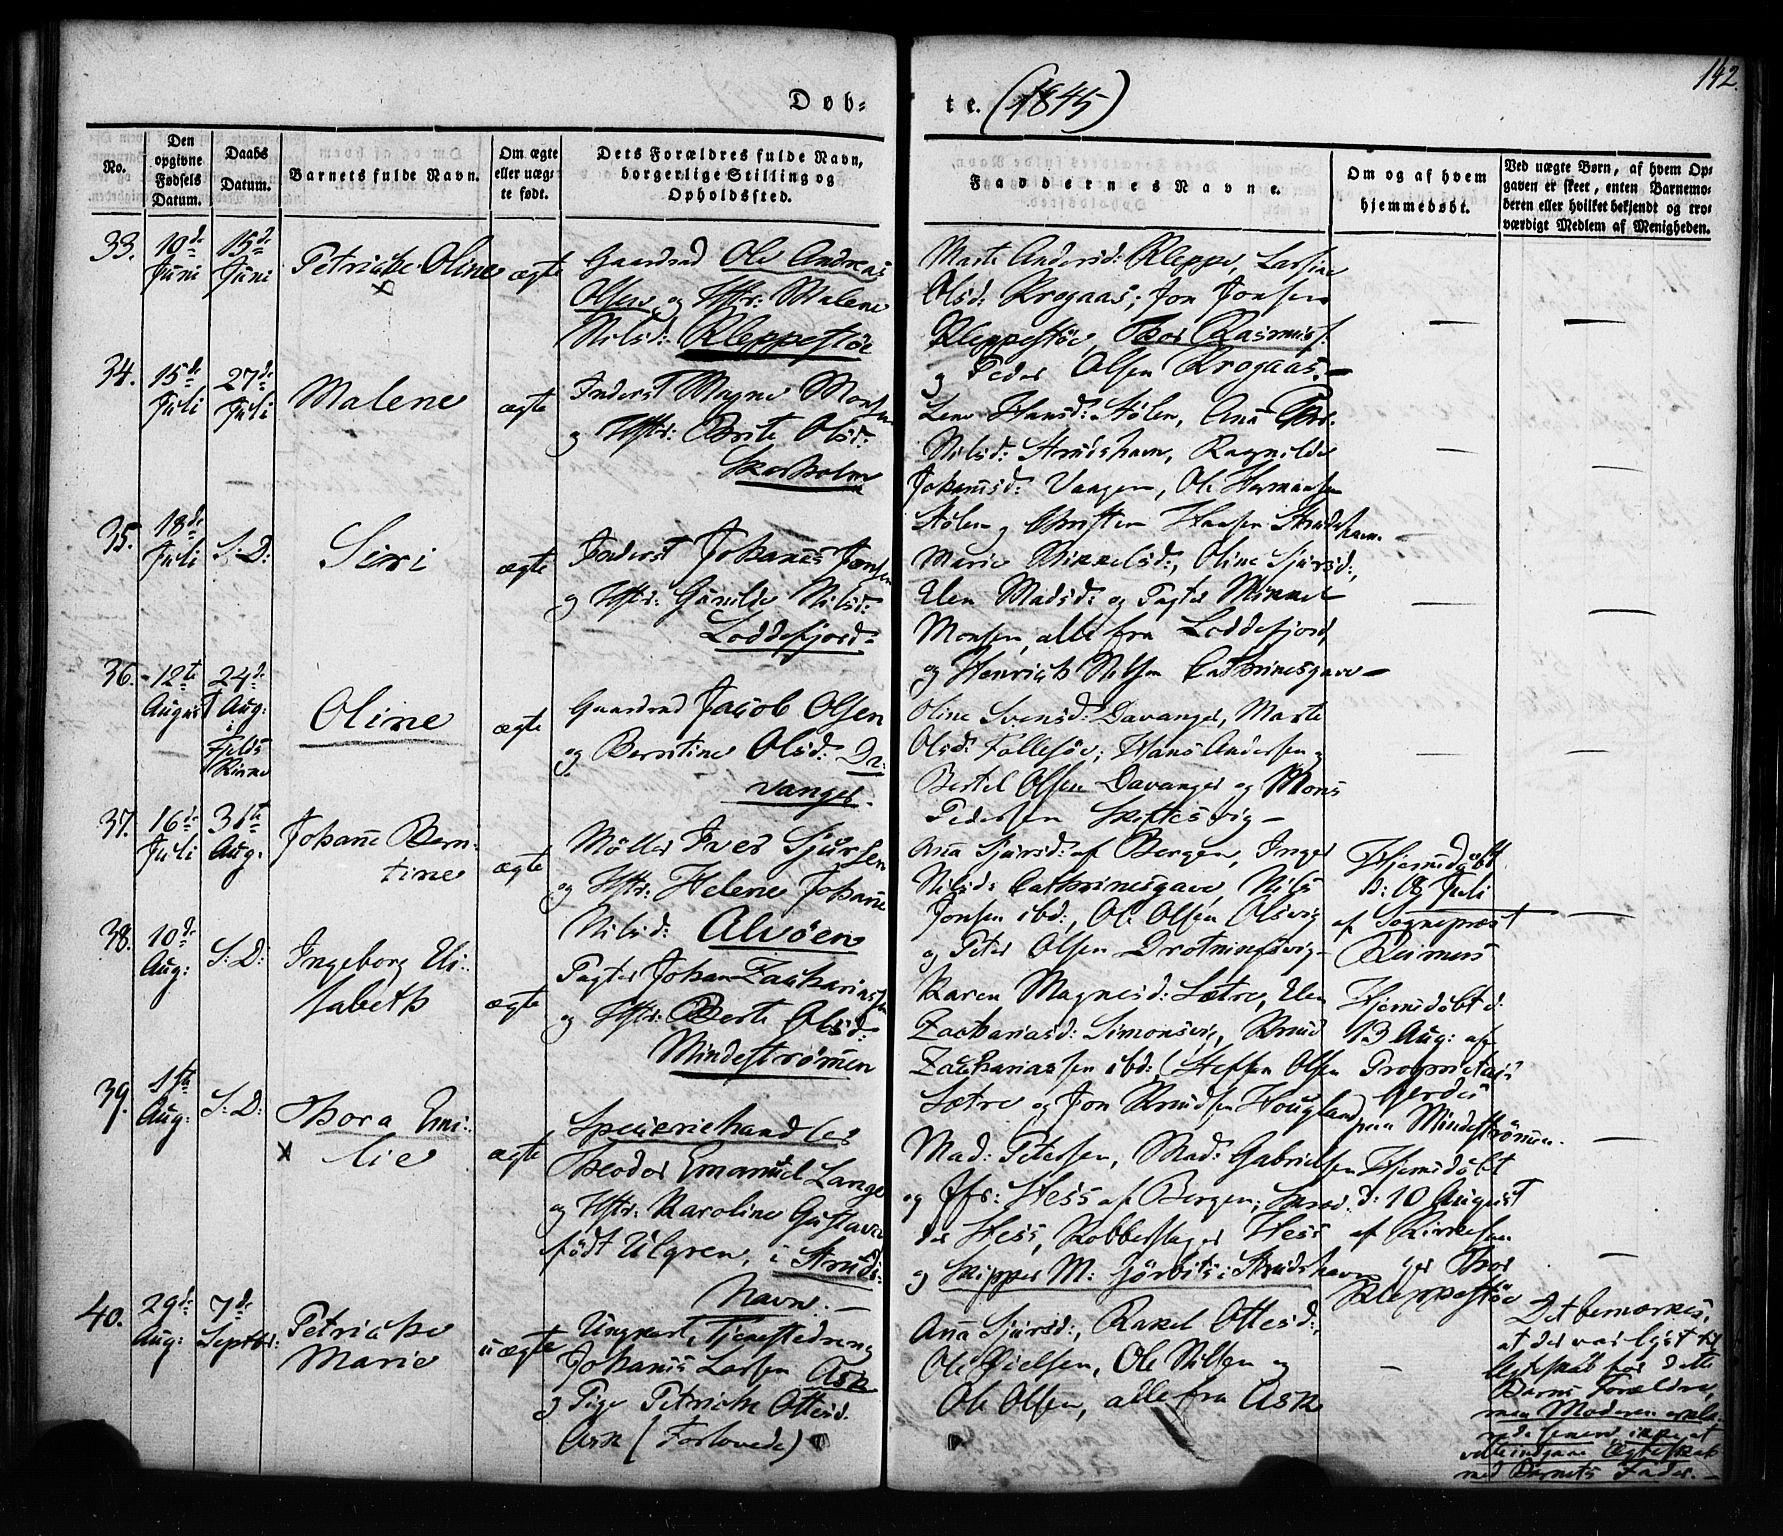 142.
Døb-
te. (1845)
No.
Den opgivne Fødsels Datum.
Daabs Datum.
Barnets fulde Navn.
Om ægte eller uægte født.
Dets Forældres fulde Navn, borgerlige Stilling og Opholdssted.
Faddernes Navne.
Om og af hvem hjemmedøbt.
Ved uægte Børn, af hvem Opgaven er skeet, enten Barnemoderen eller hvilket bekjendt og troværdigt Medlem af Menigheden.
33.
10de
Juni
15de
Juni
Petricke Oline
ægte
Gaardmd Ole Andreas
Olsen og Hstr: Malene
Nilsd: Kleppestøe
Marte Andersd: Kleppe,
Olsd: Krogaas; Jon Jonsen
Kleppestöe, Thor Rasmuss.
og Peder Olsen Krogaas.—
34.
15de
Juli
27de
Juli
Malene
ægte
Inderst Magne Monsen
og Hstr: Brite Olsd:
Skarholm
Lene Hansd: Stølen, Ana
Nilsd: Strudshavn, Ragnilde
Johanisd: Vaagen, Ole Hermansen
Stølen og Christen Hansen Strudshavn.
35.
18de
Juli
S: D:
Siri
ægte
Inderst Johanes Jonsen
og Hstr: Gunilde Nilsd:
Loddefjord.
Marie Mikkelsd:, Oline Sjursd:,
Elen Madsd: og Pagter Mikkel
Monsen, alle fra Loddefjord,
og Henrich Nilsen Cathrinesgave—
36.
12te
August
24de
Aug:
i
Fjelds
Kirke
Oline
ægte
Gaardmd Jacob Olsen
og Berntine Olsd: Da-
vanger.
Oline Svensd: Davanger, Marte
Olsd: Follesöe; Hans Andersen
Bertel Olsen Davanger og Mons
Pedersen Skiftesvig—
37.
16de
Juli
31te
Aug.
Johane Bern-
tine
ægte
Møller Iver Sjursen
og Hstr: Helene Johane
Nilsd: Alvøen
Ana Sjursd: af Bergen, Inger
Nilsd: Cathrinesgave, Nils
Jonsen ibd:, Ole Olsen Olsvig
og Peter Olsen Drotningsvig—
Hjemdøbt
d: 18 Juli
af Sognepræst
Reimers
38.
10de
Aug:
S: D:
Ingeborg Eli-
sabeth
ægte
Pagter Johan Zachariassen
og Hstr: Berte Olsd:
Mindestrømen
Karen Magnesd: Sætre, Elen
Zachariasd: Simonsvig, Knud
Zachariassen ibd: Steffen Olsen
Sætre og Jon Knudsen Hougland
Hjemdöbt d:
13 Aug: af
Proprietair
Gerdes
paa Mindestrømen.
39.
1ste
Aug:
S: D:
Thora Emi-
lie
ægte
Specerihandler
Theodor Emanuel Lange
og Hstr: Karoline Gustava
født Ulgren, i Struds-
havn.—
Mad: Petersen, Mad: Gabrielsen
og Jfr: Hess af Bergen;
Hess, Kobberslager Hess
og Skipper M: Görbits i Strudshavn
Hjemdöbt
d: 10 August
af Kirkesan-
ger Thor
Kleppestöe
40.
29de
Aug:
7de
Septbr:
Petricke
Marie
uægte
Ungkarl, Tjenestedreng
Johanes Larsen Ask
og Pige Petricke Ottesd.
Ask (Forlovede)
Ana Sjursd:, Rakel Ottesd:,
Ole Nielsen, Ole Nilsen og
Ole Olsen, alle fra Ask
Det bemærkes,
at der var lyst til
Ægteskab for dette
Barns Forældre,
men Moderen erklæ-
rede senere ikke at
ville indgaae Ægteskab
med Barnets Fader.—